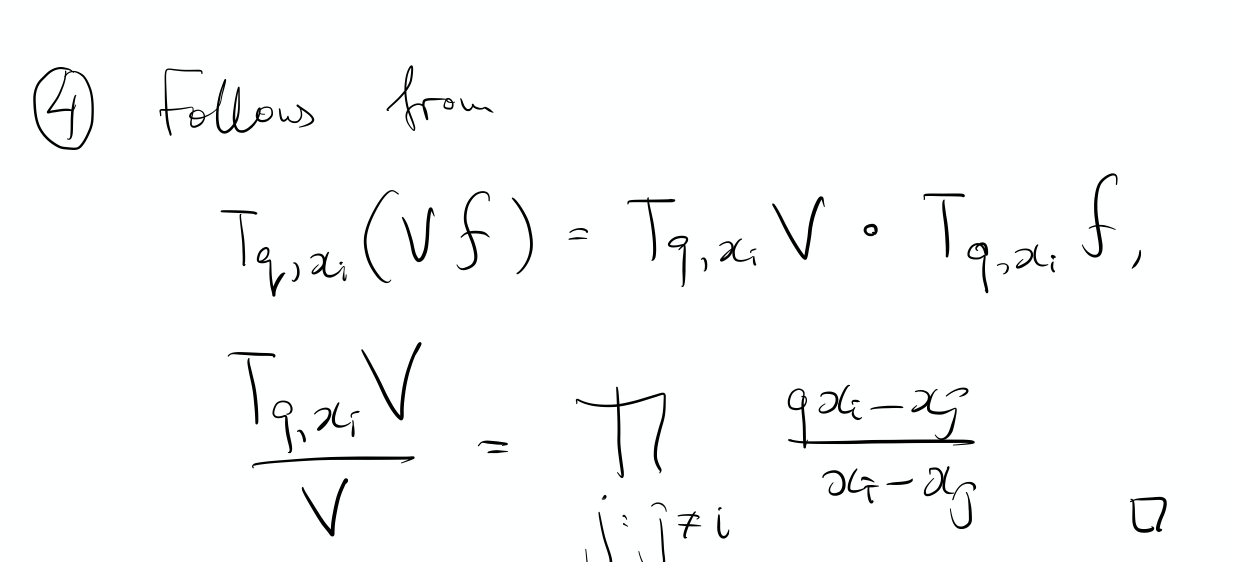 ④ Follows from
T_{q,x_i}(V f) = T_{q,x_i} V · T_{q,x_i} f,
\frac{T_{q,x_i} V}{V} = ∏_{j: j≠i} \frac{q x_i − x_j}{x_i − x_j} □